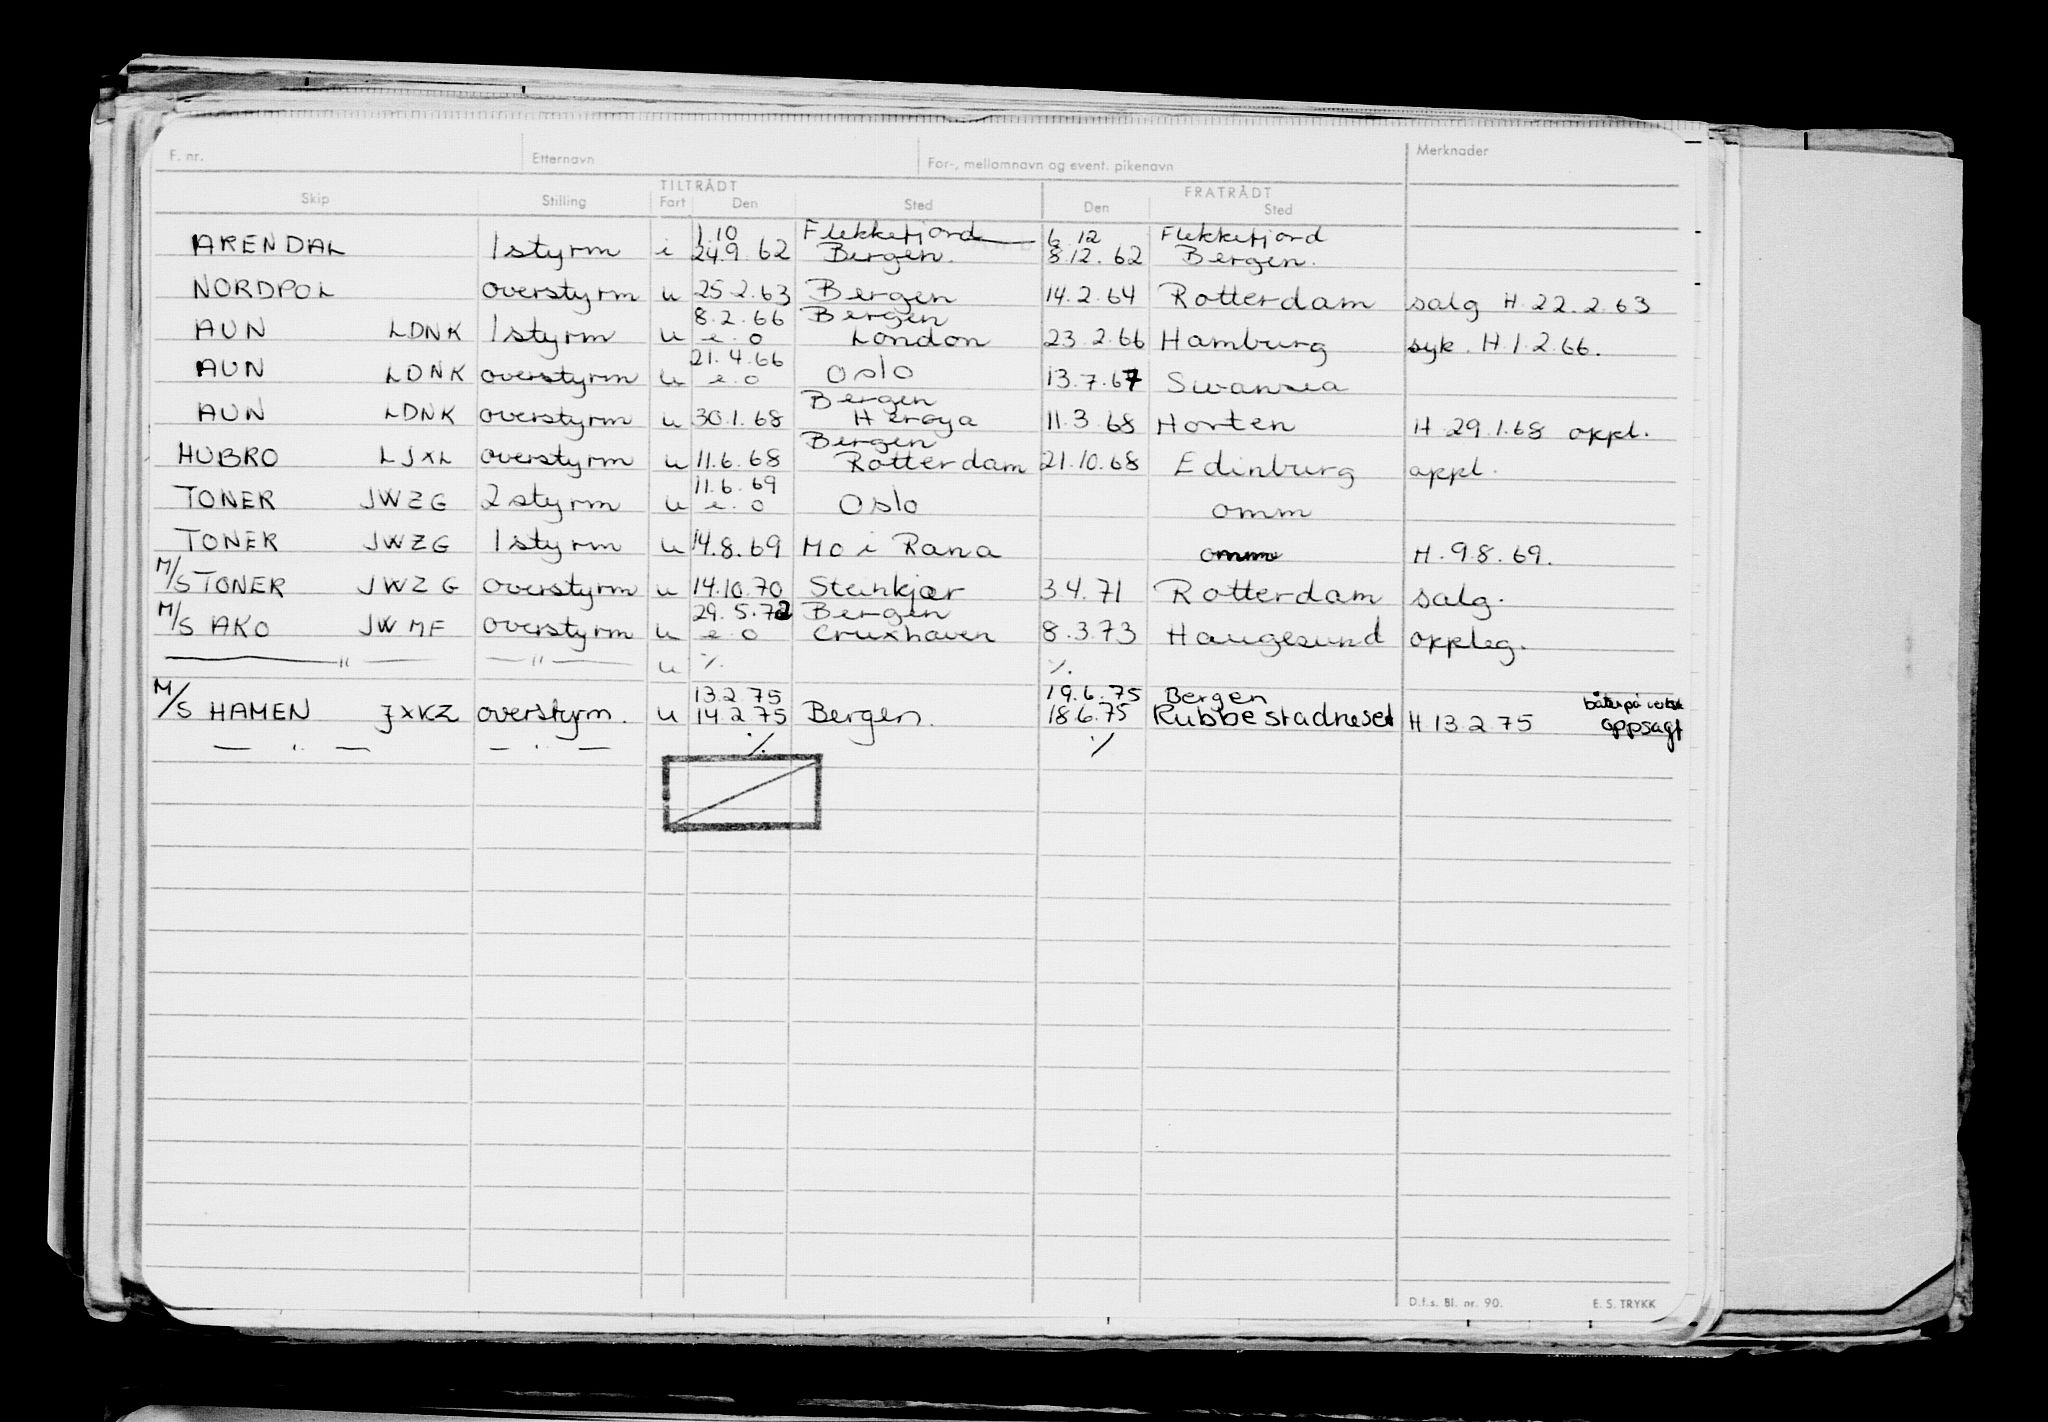 F. nr. Etternavn For-, mellomnavn og event. pikenavn Merknader
TILTRÅDT FRATRÅDT
Skip Stilling Fart Den Sted Den Sted
1.10 Flekkefjord 6.12 Flekkefjord
ARENDAL 1styrm i 24.9.62 Bergen. 8.12.62 Bergen.
NORDPOL overstyrm u 25.2.63 Bergen 14.2.64 Rotterdam salg H.22.2.63
8.2.66 Bergen
AUN LDNK 1styrm u e.o London 23.2.66 Hamburg syk. H.1.2.66.
21.4.66
AUN LDNK overstyrm u e.o Oslo 13.7.67 Swansea
Bergen
AUN LDNK overstyrm u 30.1.68 Herøya 11.3.68 Horten H.29.1.68 oppl.
Bergen
HUBRO LJXL overstyrm u 11.6.68 Rotterdam 21.10.68 Edinburg oppl.
11.6.69
TONER JWZG 2styrm u e.o Oslo omm
TONER JWZG 1styrm u 14.8.69 Mo i Rana omm H.9.8.69.
M/S TONER JWZG overstyrm u 14.10.70 Steinkjær 3.4.71 Rotterdam salg.
29.5.72 Bergen
M/S AKO JWMF overstyrm u e.o Cruxhaven 8.3.73 Haugesund oppleg.
— " — — " — u ٪ ٪
13.2.75 19.6.75 Bergen
M/S HAMEN JXKZ overstyrm. u 14.2.75 Bergen. 18.6.75 Rubbestadneset H 13.2.75 oppsagt
— " — — " — ٪ ٪
D.f.s. Bl. nr. 90. E. S. TRYKK